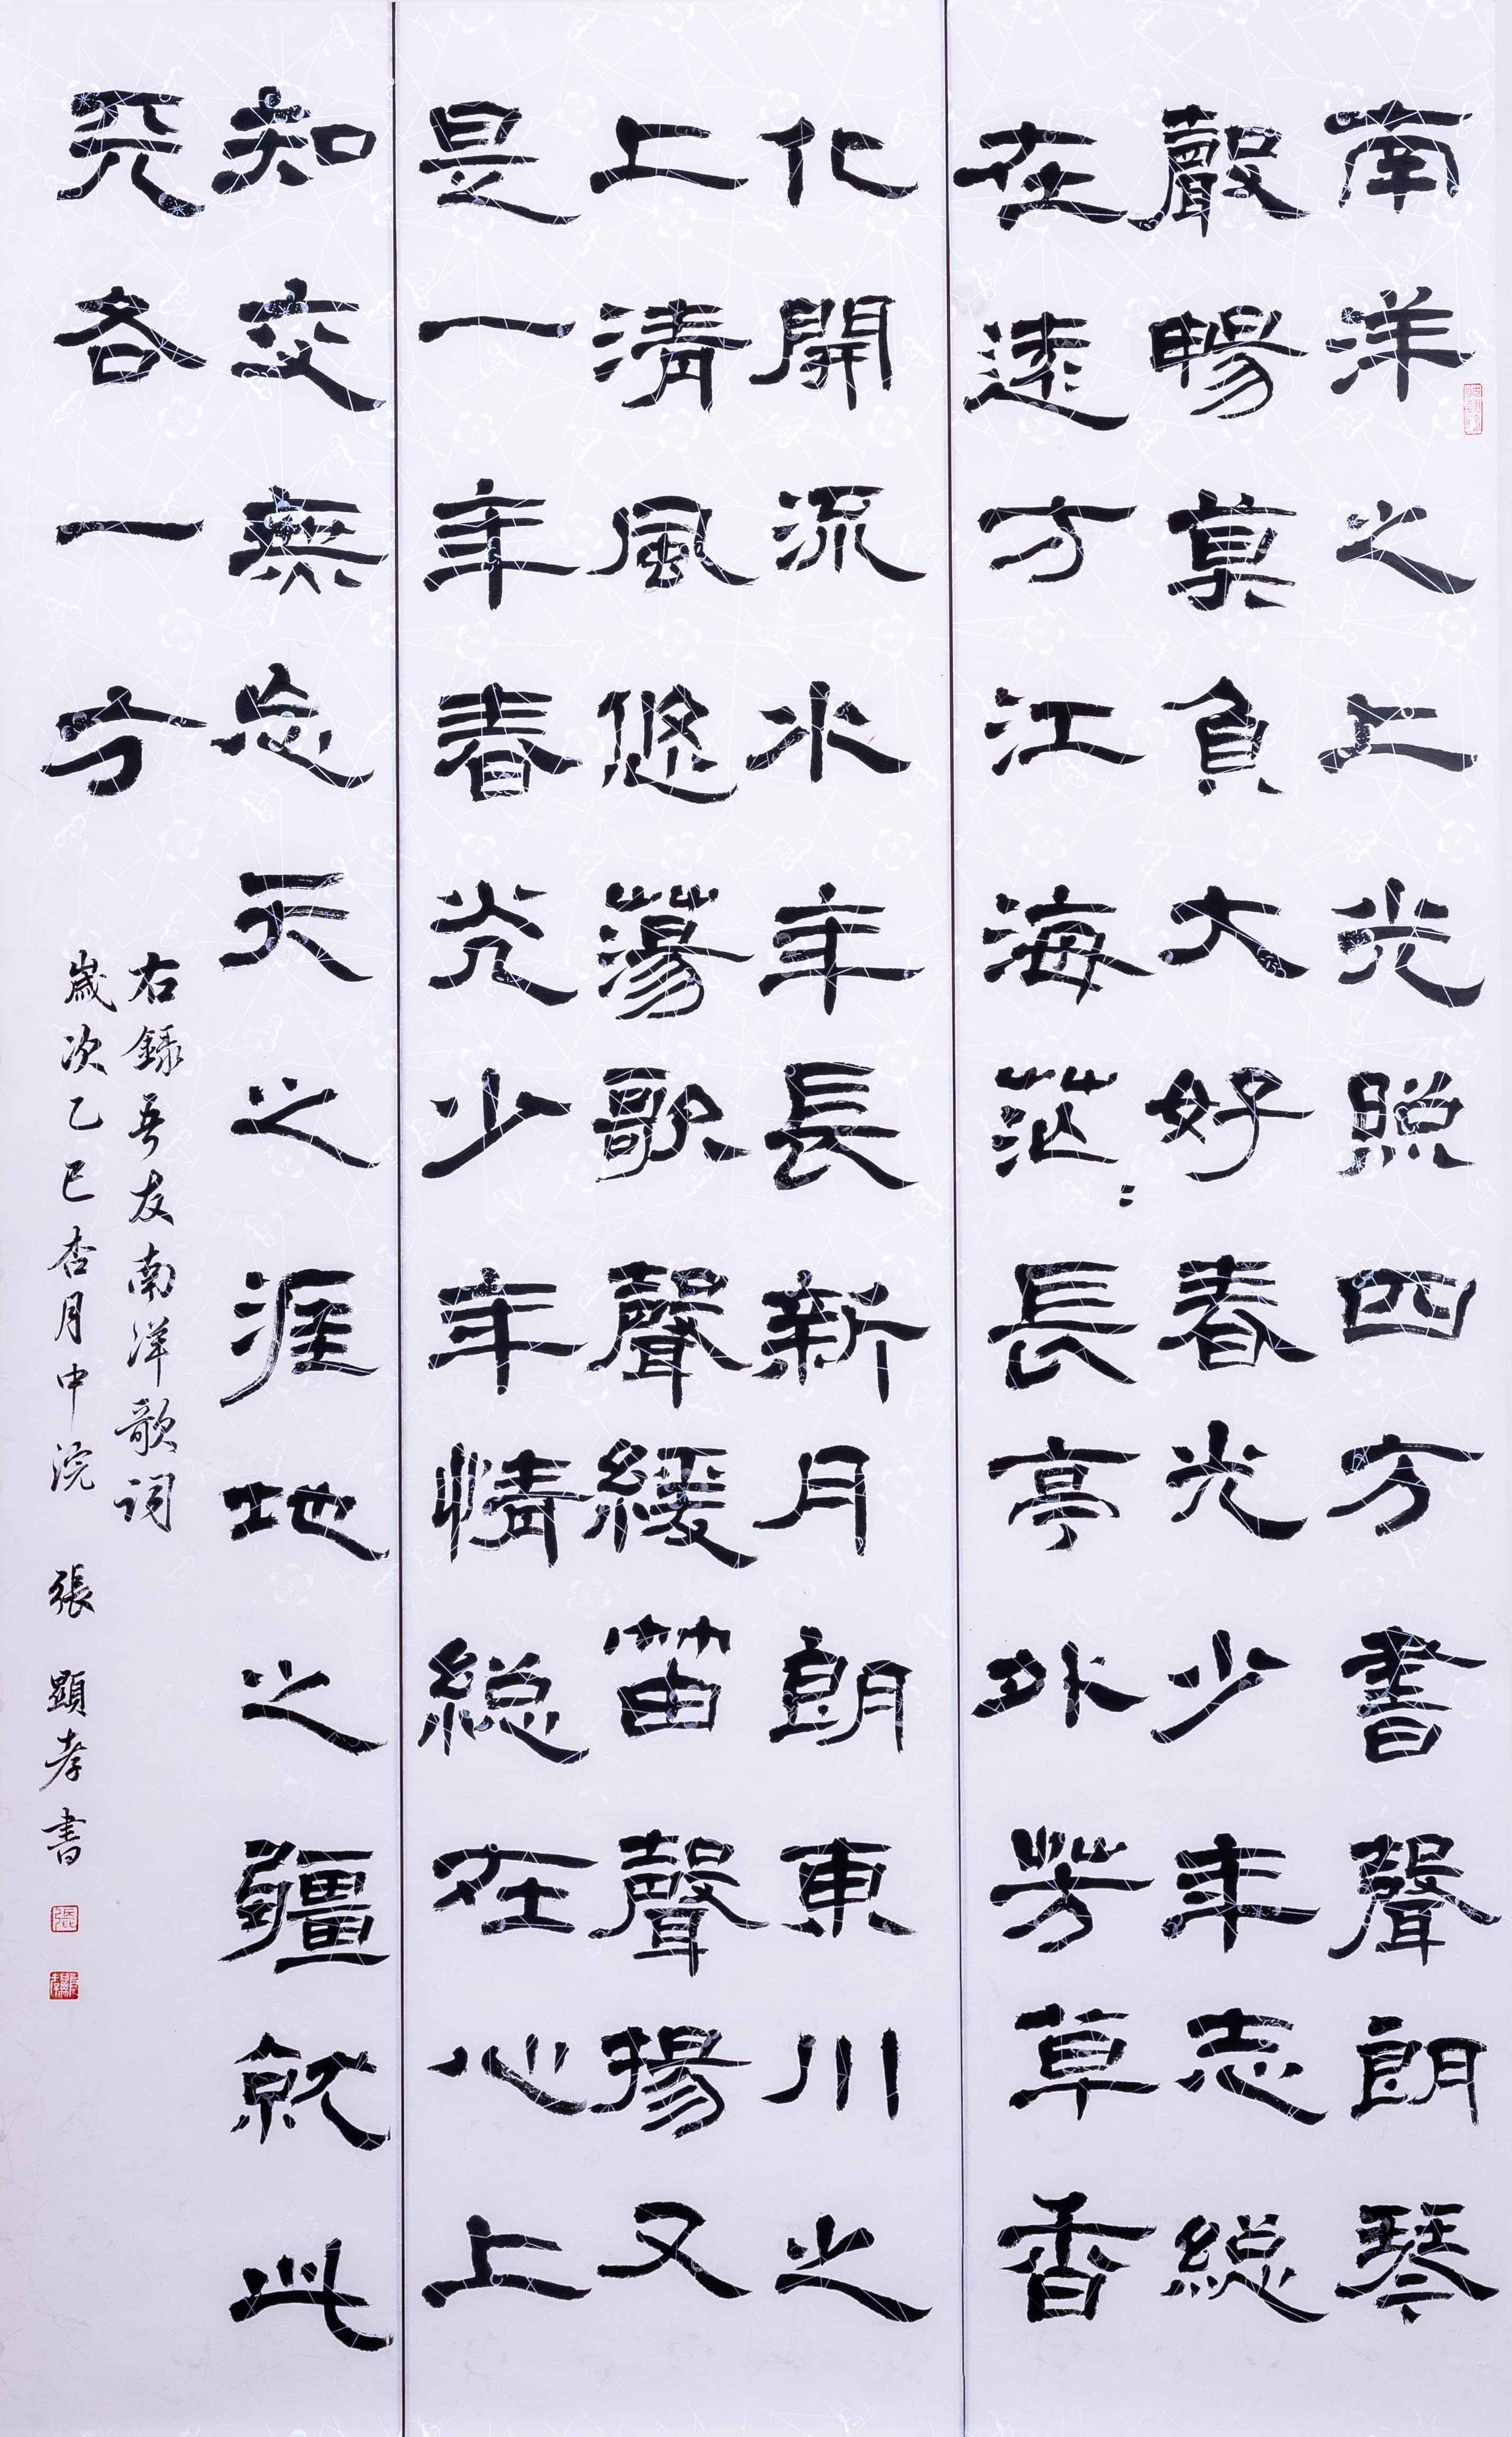 南洋之上光照四方書聲朗琴
聲暢莫負大好春光少年志總
在遠方江海茫〻長亭外芳草香
化開流水年長新月朗東川之
上清風悠蕩歌聲緩笛聲揚又
是一年春光少年情總在心上
知交無忘天之涯地之疆就此
哭各一方
右錄吾友南洋歌詞
歲次乙巳杏月中浣 張顯孝書